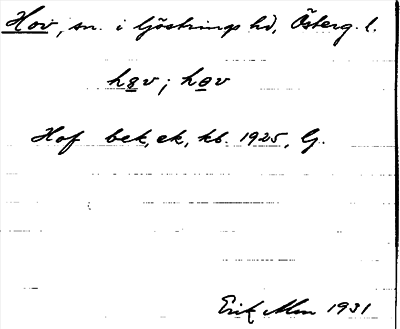 Hov, sn. i Göstrings hd, Österg. l.
hov; hov
Hof bek, ek, kb. 1925, G.
Erik Alm 1931